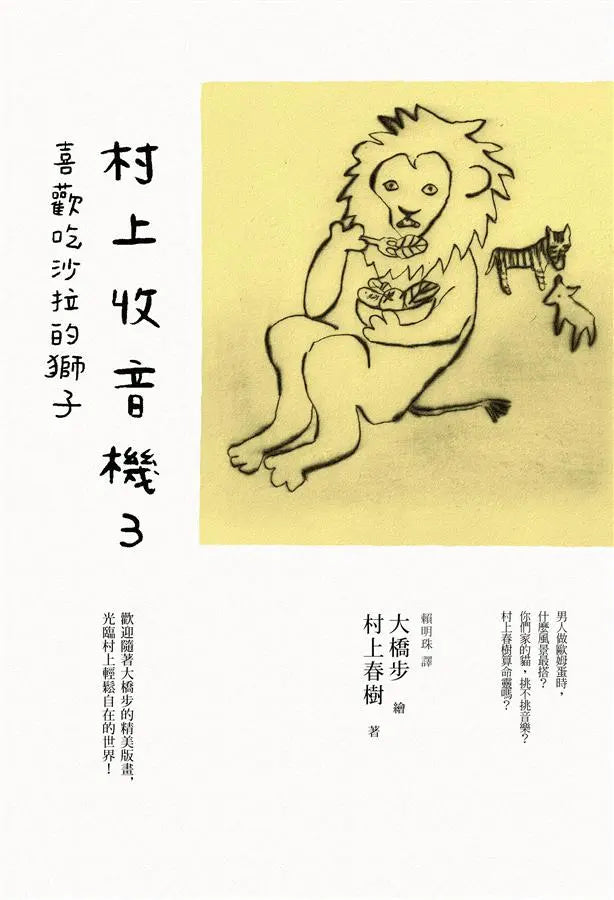 村上收音機3
喜歡吃沙拉的獅子
男人做歐姆蛋時，
什麼風景最搭？
你們家的貓，挑不挑音樂？
村上春樹算命靈嗎？
賴明珠 譯
大橋步 繪
村上春樹 著
歡迎隨著大橋步的精美版畫，
光臨村上輕鬆自在的世界！